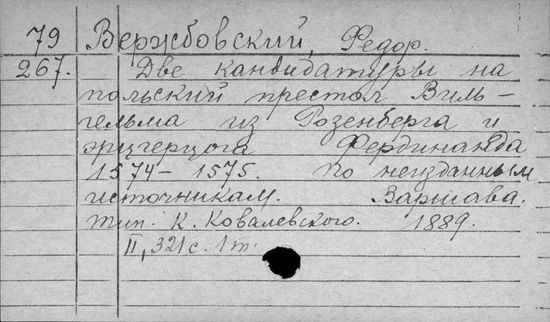 79 Вержбовский, Федор.
267. Две кандидатуры на
польский престол Виль-
гельма из Розенберга и
эрцгерцога Фердинанда
1574-1575. по неизданным
источникам. Варшава.
тип. К. Ковалевского. 1889.
II, 321 с. 1 т.